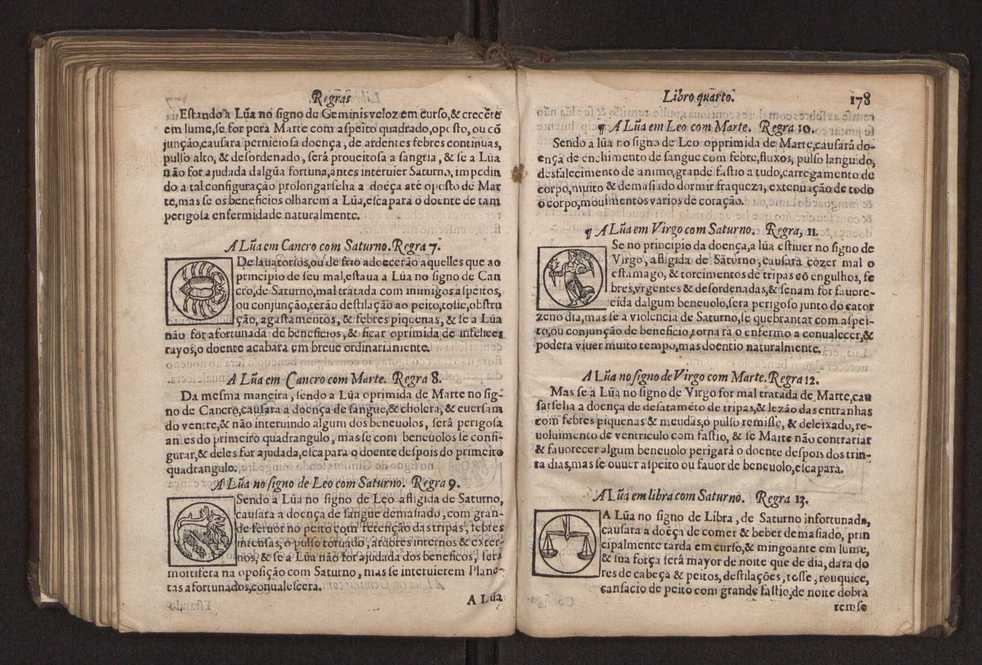 Regras
Estando a Lũa no signo de Geminis veloz em curso,& crecẽte
em lume,se for pera Marte com aspeito quadrado,oposto,ou cõ
junção,causara perniciosa doença, de ardentes febres continuas,
pulso alto, & desordenado, será proueitosa a sangria, & se a Lũa
não for ajudada dalgũa fortuna,antes interuier Saturno, impedin
do a tal configuração prolongarselha a doẽça até oposto de Mar
te,mas se os beneficios olharem a Lũa,escapara o doente de tam
perigosa enfermidade naturalmente.
A Lũa em Cancro com Saturno. Regra 7.
De lauatorios,ou de frio adoecerão aquelles que ao
principio de seu mal,estaua a Lũa no signo de Can
cro,de Saturno,mal tratada com inimigos aspeitos,
ou conjunção,terão destilação ao peito,tosse,obstru
ção, agastamentos, & febres piquenas, & se a Lũa
não for afortunada de beneficios, & ficar oprimida de infelices
rayos,o doente acabara em breue ordinariamente.
A Lũa em Cancro com Marte. Regra 8.
Da mesma maneira, sendo a Lũa oprimida de Marte no sig-
no de Cancro,causara a doença de sangue,& cholera, & euersam
do ventre,& não interuindo algum dos beneuolos, será perigosa
antes do primeiro quadrangulo, mas se com beneuolos se confi-
gurar,& deles for ajudada,escapara o doente despois do primeiro
quadrangulo.
A Lũa no signo de Leo com Saturno. Regra 9.
Sendo a Lũa no signo de Leo afligida de Saturno,
causara a doença de sangue demasiado, com gran-
de feruor no peito com retenção das tripas, febres
intensas, o pulso toruado, ardores internos & exter-
nos, & se a Lũa não for ajudada dos beneficos, será
mortifera na oposição com Saturno, mas se interuierem Plane-
tas afortunados,conualescera.
A Lũa
Libro quarto. 178
¶ A Lũa em Leo com Marte. Regra 10.
Sendo a lũa no signo de Leo opprimida de Marte,causará do-
ença de enchimento de sangue com febre,fluxos, pulso languido,
desfalecimento de animo,grande fastio a tudo,carregamento de
corpo,muito & demasiado dormir fraqueza, extenuação de todo
o corpo,mouimentos varios de coração.
¶ A Lũa em Virgo com Saturno. Regra, 11.
Se no principio da doença,a lũa estiuer no signo de
Virgo, afligida de Saturno, causara cozer mal o
estamago, & torcimentos de tripas cõ engulhos, fe
bres,vrgentes & desordenadas,& senam for fauore-
cida dalgum beneuolo,sera perigoso junto do cator
zeno dia,mas se a violencia de Saturno,se quebrantar com aspei-
to,ou conjunção de beneficio,tornara o enfermo a conualecer,&
podera viuer muito tempo,mas doentio naturalmente.
A Lũa no signo de Virgo com Marte. Regra 12.
Mas se a Lũa no signo de Virgo for mal tratada de Marte,cau
sarselha a doença de desatamẽto de tripas,& lezão das entranhas
com febres piquenas & meudas,o pulso remisso, & deleixado,re-
uoluimento de ventriculo com fastio, & se Marte não contrariar
& fauorecer algum beneuolo perigará o doente despois dos trin-
ta dias,mas se ouuer aspeito ou fauor de beneuolo,escapara.
A Lũa em libra com Saturno. Regra 13.
A Lũa no signo de Libra, de Saturno infortunada,
causara a doẽça de comer & beber demasiado, prin
cipalmente tarda em curso,& mingoante em lume,
& sua força será mayor de noite que de dia, dara do
res de cabeça & peitos, destilações, tosse, rouquice,
cansacio de peito com grande fastio,de noite dobra
remse